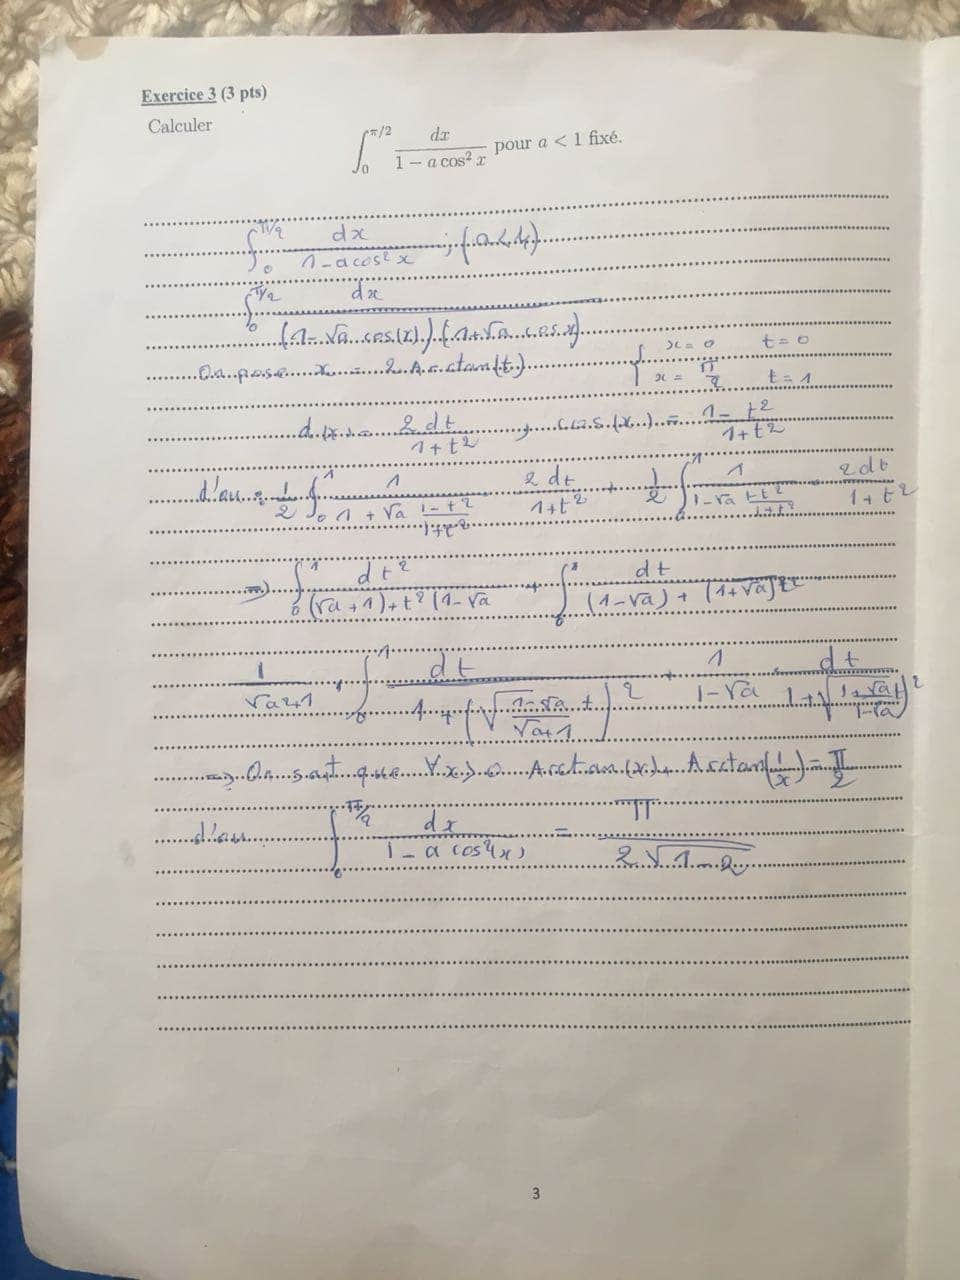 Exercice 3 (3 pts)
Calculer
∫_0^{π/2} dx / (1 − a cos² x) pour a < 1 fixé.
∫_0^{π/2} dx / (1 − a cos² x) ; (a < 1)
∫_0^{π/2} dx / ((1 − √a cos(x)) (1 + √a cos x))
On pose x = 2 Arctan(t) { x = 0 t = 0
x = π/2 t = 1
d(x) = 2 dt / (1 + t²) , cos(x) = (1 − t²) / (1 + t²)
d'ou : 1/2 ∫_0^1 1 / (1 + √a (1 − t²)/(1 + t²)) 2 dt / (1 + t²) + 1/2 ∫_0^1 1 / (1 − √a (1 − t²)/(1 + t²)) · 2 dt / (1 + t²)
=> ∫_0^1 dt² / ((√a + 1) + t² (1 − √a + ∫_0^1 dt / ((1 − √a) + (1 + √a) t²
1 / (√a + 1) · ∫_0^1 dt / (1 + (√((1 − √a)/(√a + 1)) t)² + 1 / (1 − √a) · dt / (1 + √((1 + √a)/(1 − √a)) t)²
=> On sait que ∀x > 0 Arctan(x) + Arctan(1/x) = π/2
d'ou ∫_0^{π/2} dx / (1 − a cos²(x)) = π / (2 √(1 − a))
3